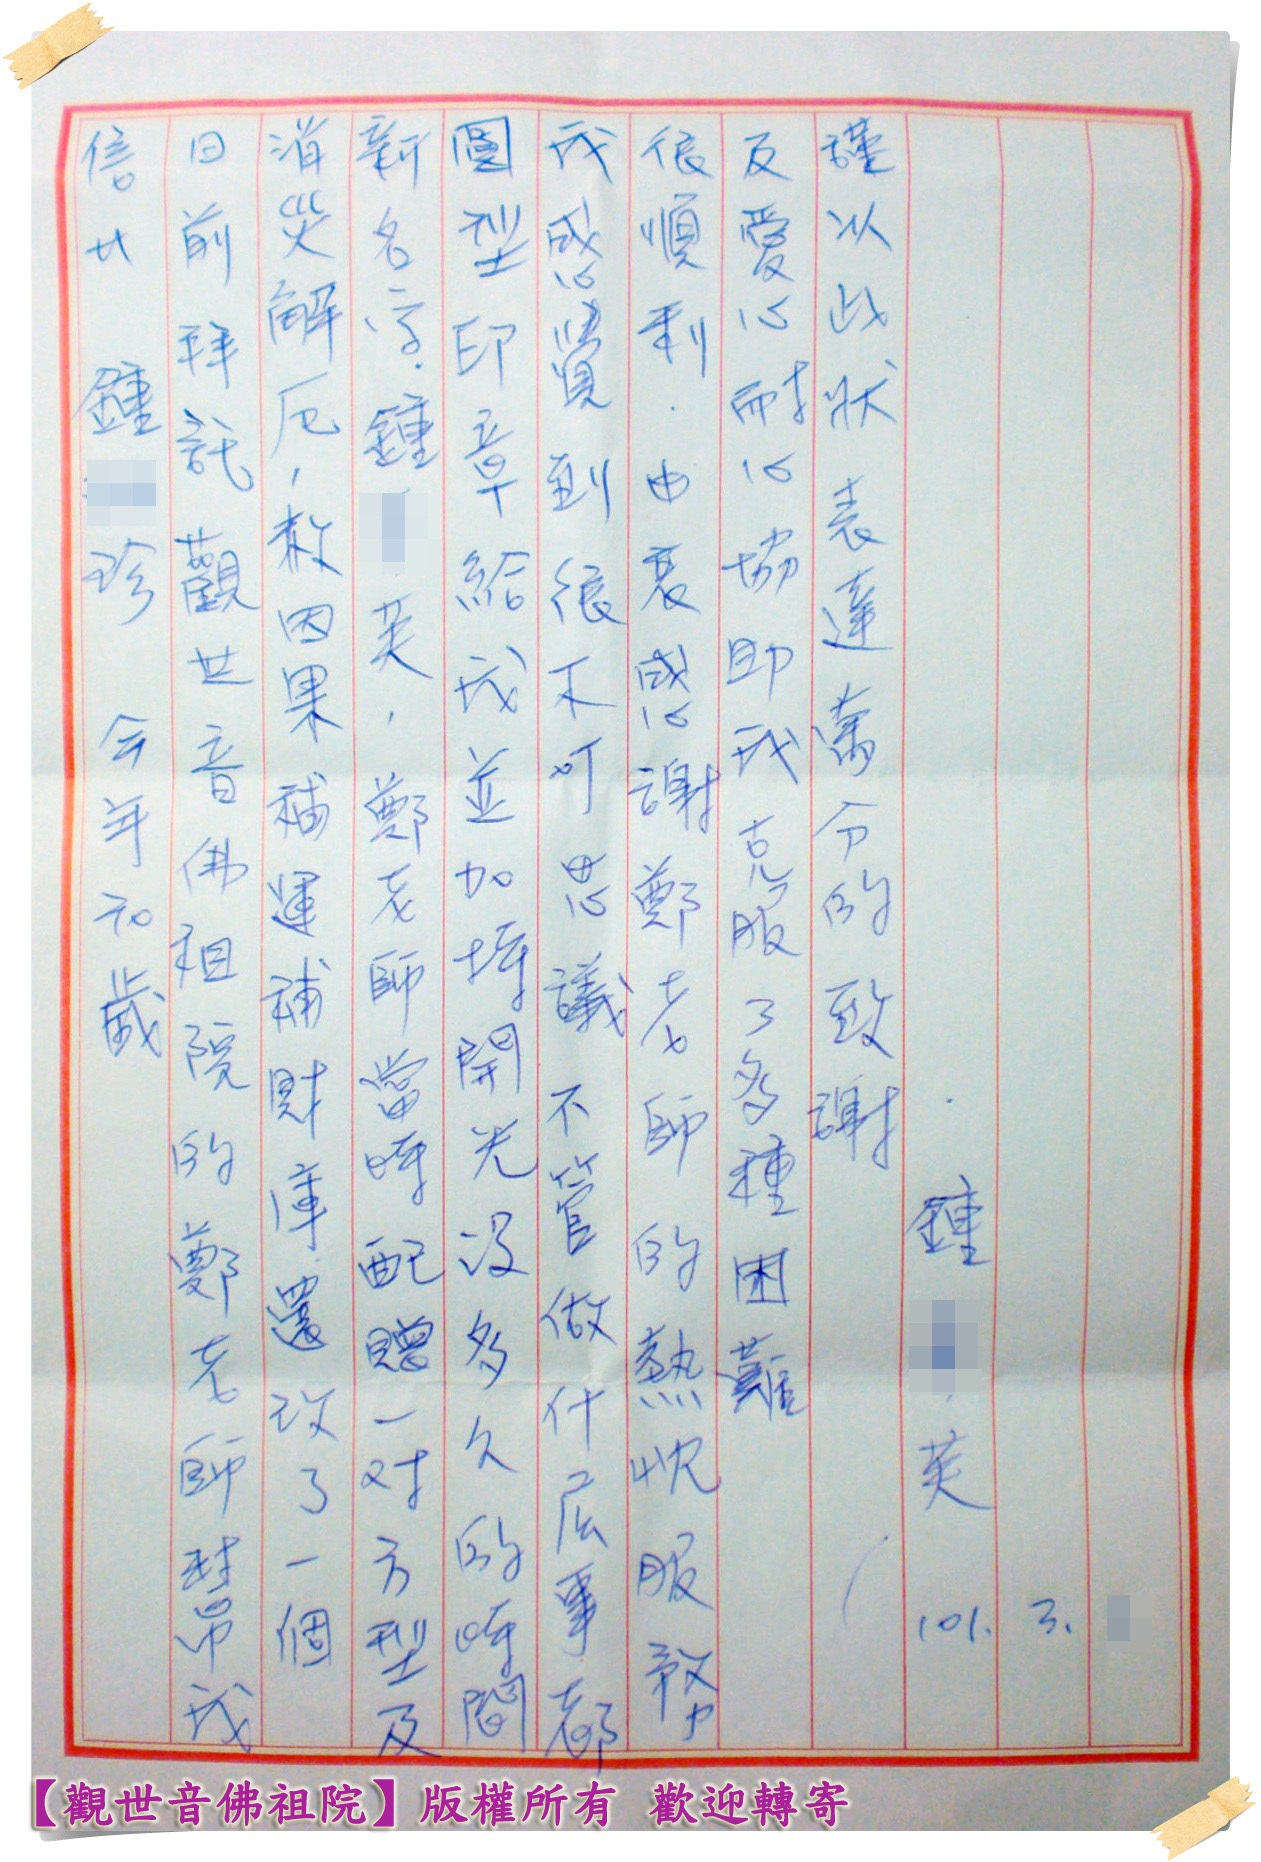 信女 鍾 珍 今年 歲
日前拜託觀世音佛祖院的鄭老師幫我
消災解厄,救因果補運補財庫.還改了一個
新名字.鍾 英,鄭老師當時配贈一對方型及
圓型印章給我並加持開光沒多久的時間
我感覺到很不可思議 不管做什麼事都
很順利.由衷感謝鄭老師的熱忱服務
及愛心耐心協助我克服了多種困難
謹以此狀表達萬分的致謝
鍾 英
101. 3.
【觀世音佛祖院】版權所有 歡迎轉寄